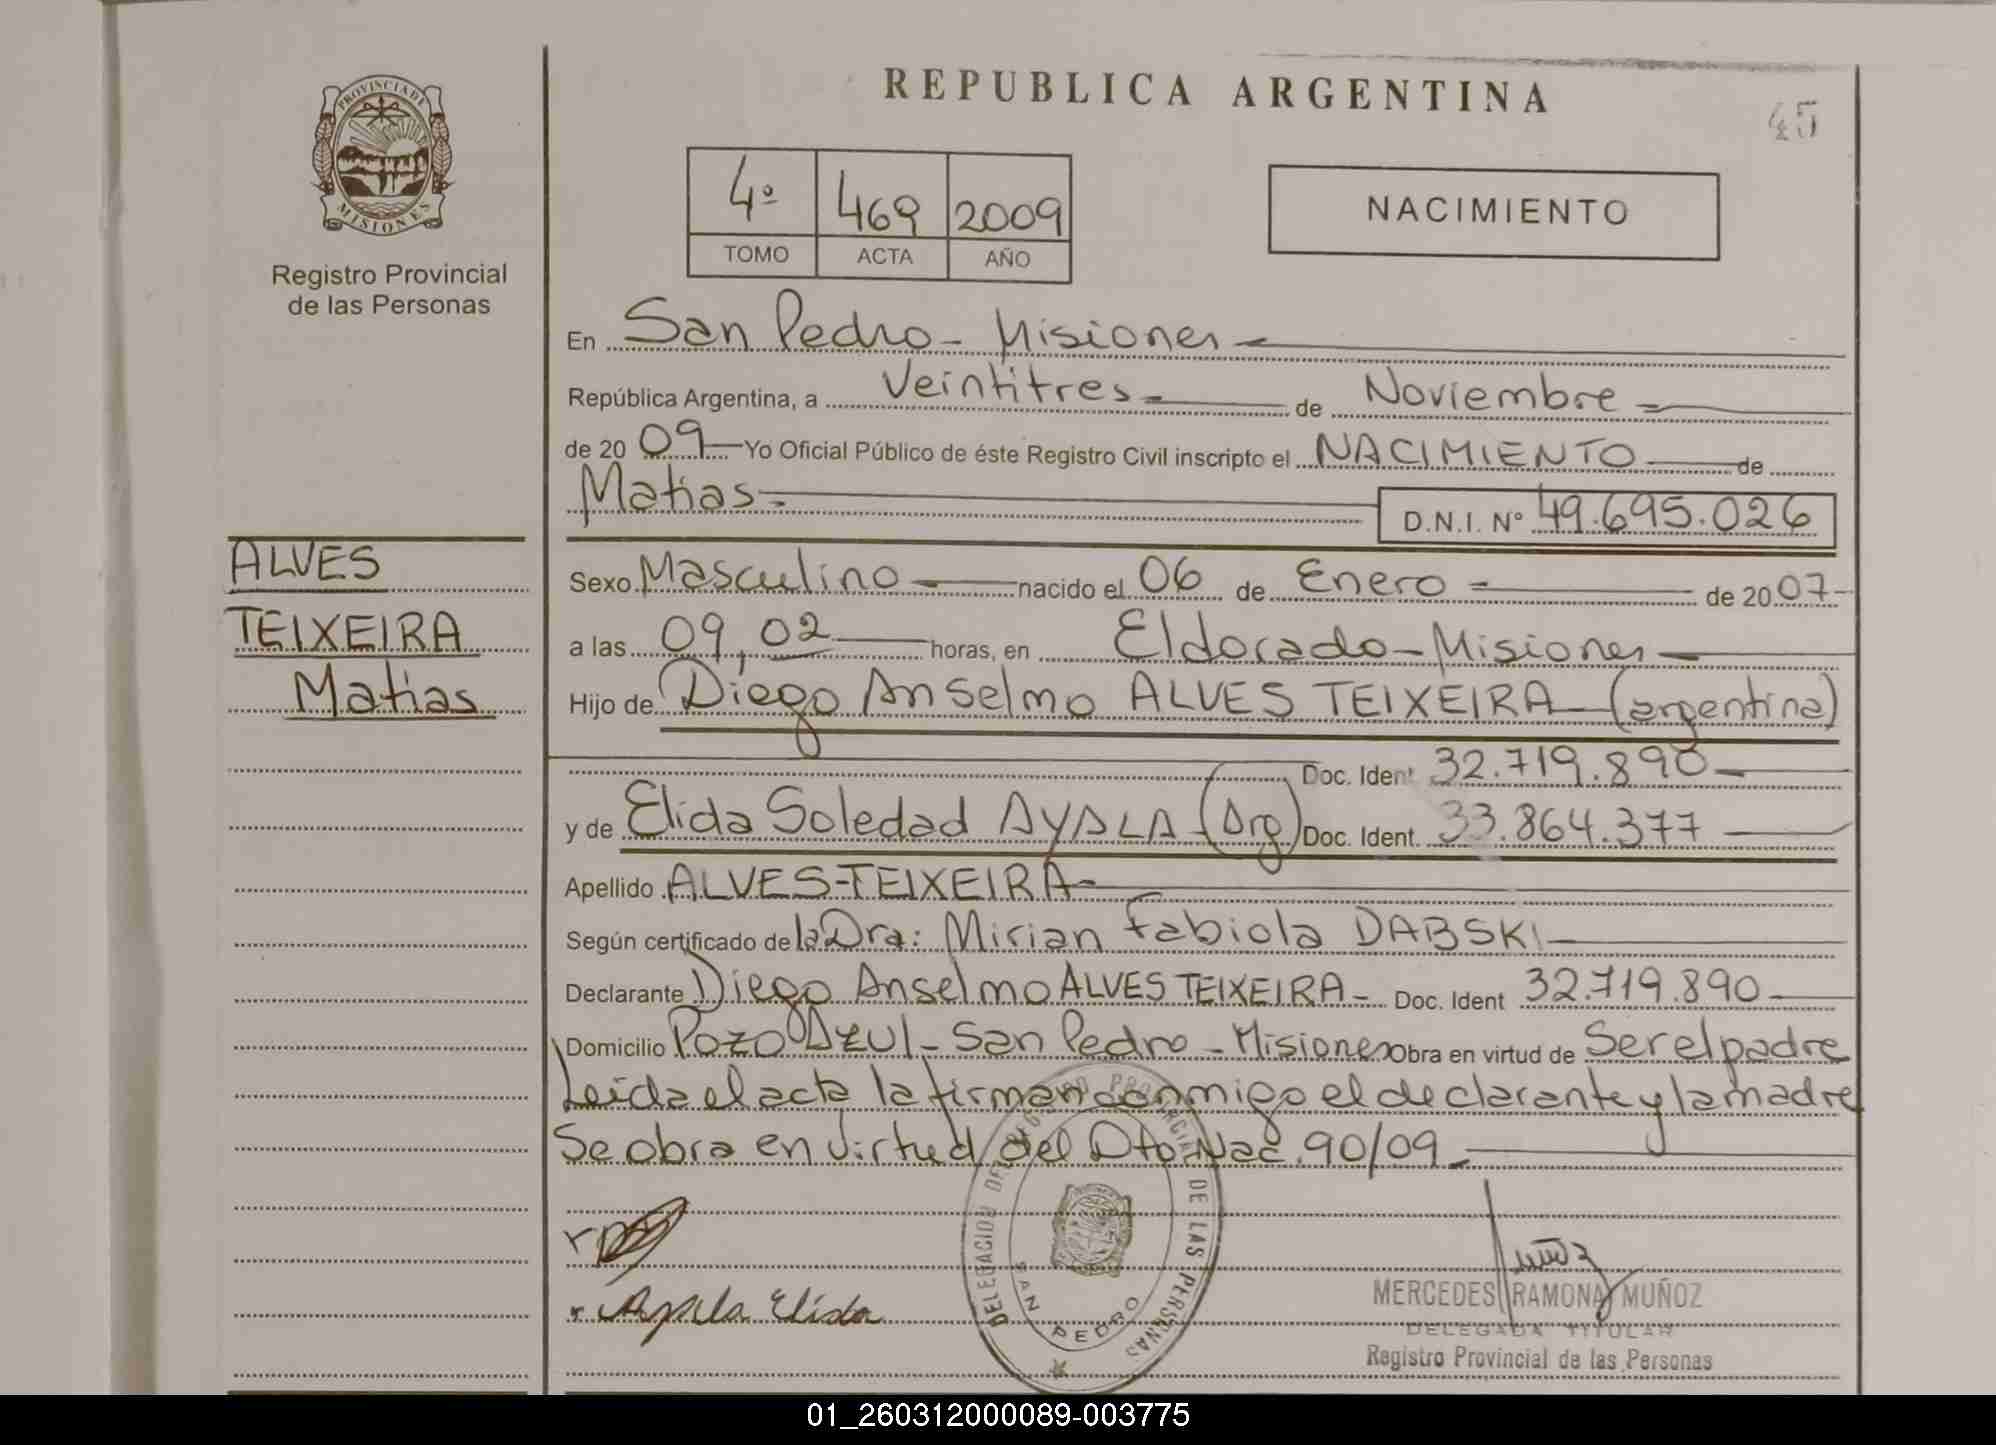 REPUBLICA ARGENTINA
45
PROVINCIA DE
MISIONES
Registro Provincial
de las Personas
4º 469 2009
TOMO ACTA AÑO
NACIMIENTO
En San Pedro - Misiones
República Argentina, a Veintitres de Noviembre
de 20 09 Yo Oficial Público de éste Registro Civil inscripto el NACIMIENTO de
Matias
D.N.I. Nº 49.695.026
ALVES
TEIXEIRA
Matias
Sexo Masculino nacido el 06 de Enero de 20 07
a las 09,02 horas, en Eldorado - Misiones
Hijo de Diego Anselmo ALVES TEIXEIRA (argentina)
Doc. Ident 32.719.890
y de Elida Soledad AYALA (Arg) Doc. Ident. 33.864.377
Apellido ALVES-TEIXEIRA
Según certificado de la Dra: Mirian Fabiola DABSKI
Declarante Diego Anselmo ALVES TEIXEIRA - Doc. Ident 32.719.890
Domicilio Pozo Azul - San Pedro - Misiones obra en virtud de Ser el padre
Leida el acta la firman conmigo el declarante y la madre
Se obra en virtud del Dto Nac. 90/09
DELEGACION DEL REGISTRO PROVINCIAL DE LAS PERSONAS
SAN PEDRO
Ayala Elida
Muñoz
MERCEDES RAMONA MUÑOZ
DELEGADA TITULAR
Registro Provincial de las Personas
01_260312000089-003775